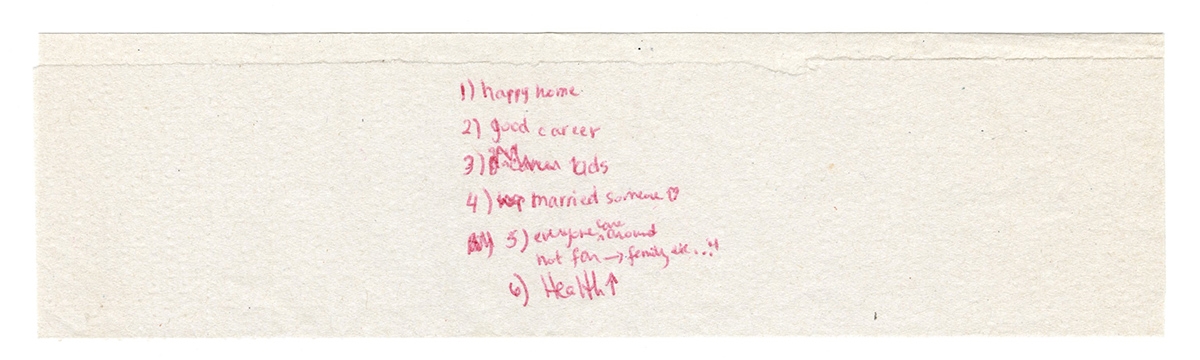 1) happy home.
2) good career
3) kids
4) married someone ♡
5) everyone love around
not far → family etc...
6) Health ↑